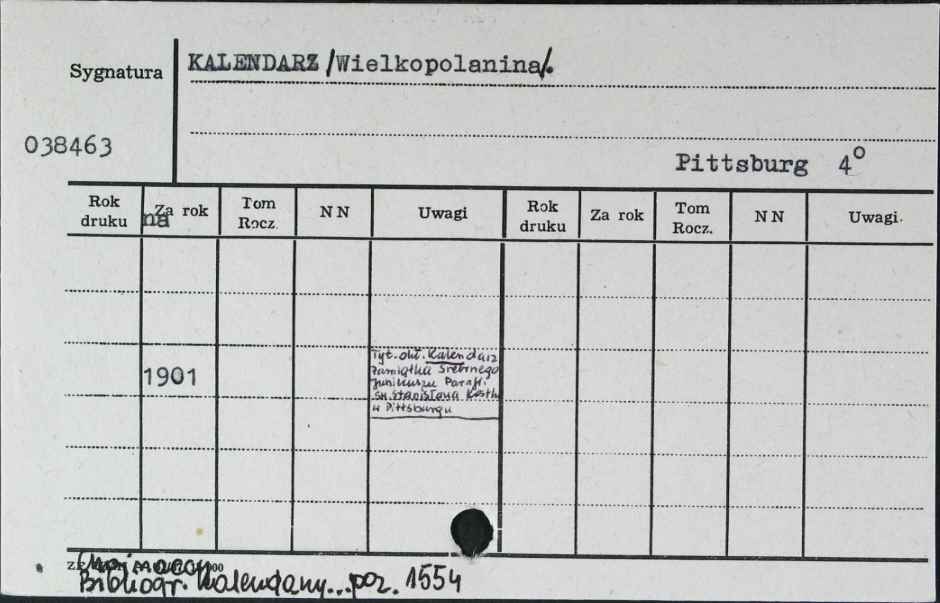 KALENDARZ /Wielkopolanina/.
Sygnatura
038463
Pittsburg 4°
Rok druku Za rok Tom Rocz. NN Uwagi Rok druku Za rok Tom Rocz. NN Uwagi.
na
Tyt. okł. Kalendarz
Pamiątka Srebrnego
Jubileuszu Parafi.
św. Stanisława Kostki
w Pittsburgu
1901
Bibliogr. Kalendarzy... poz. 1554